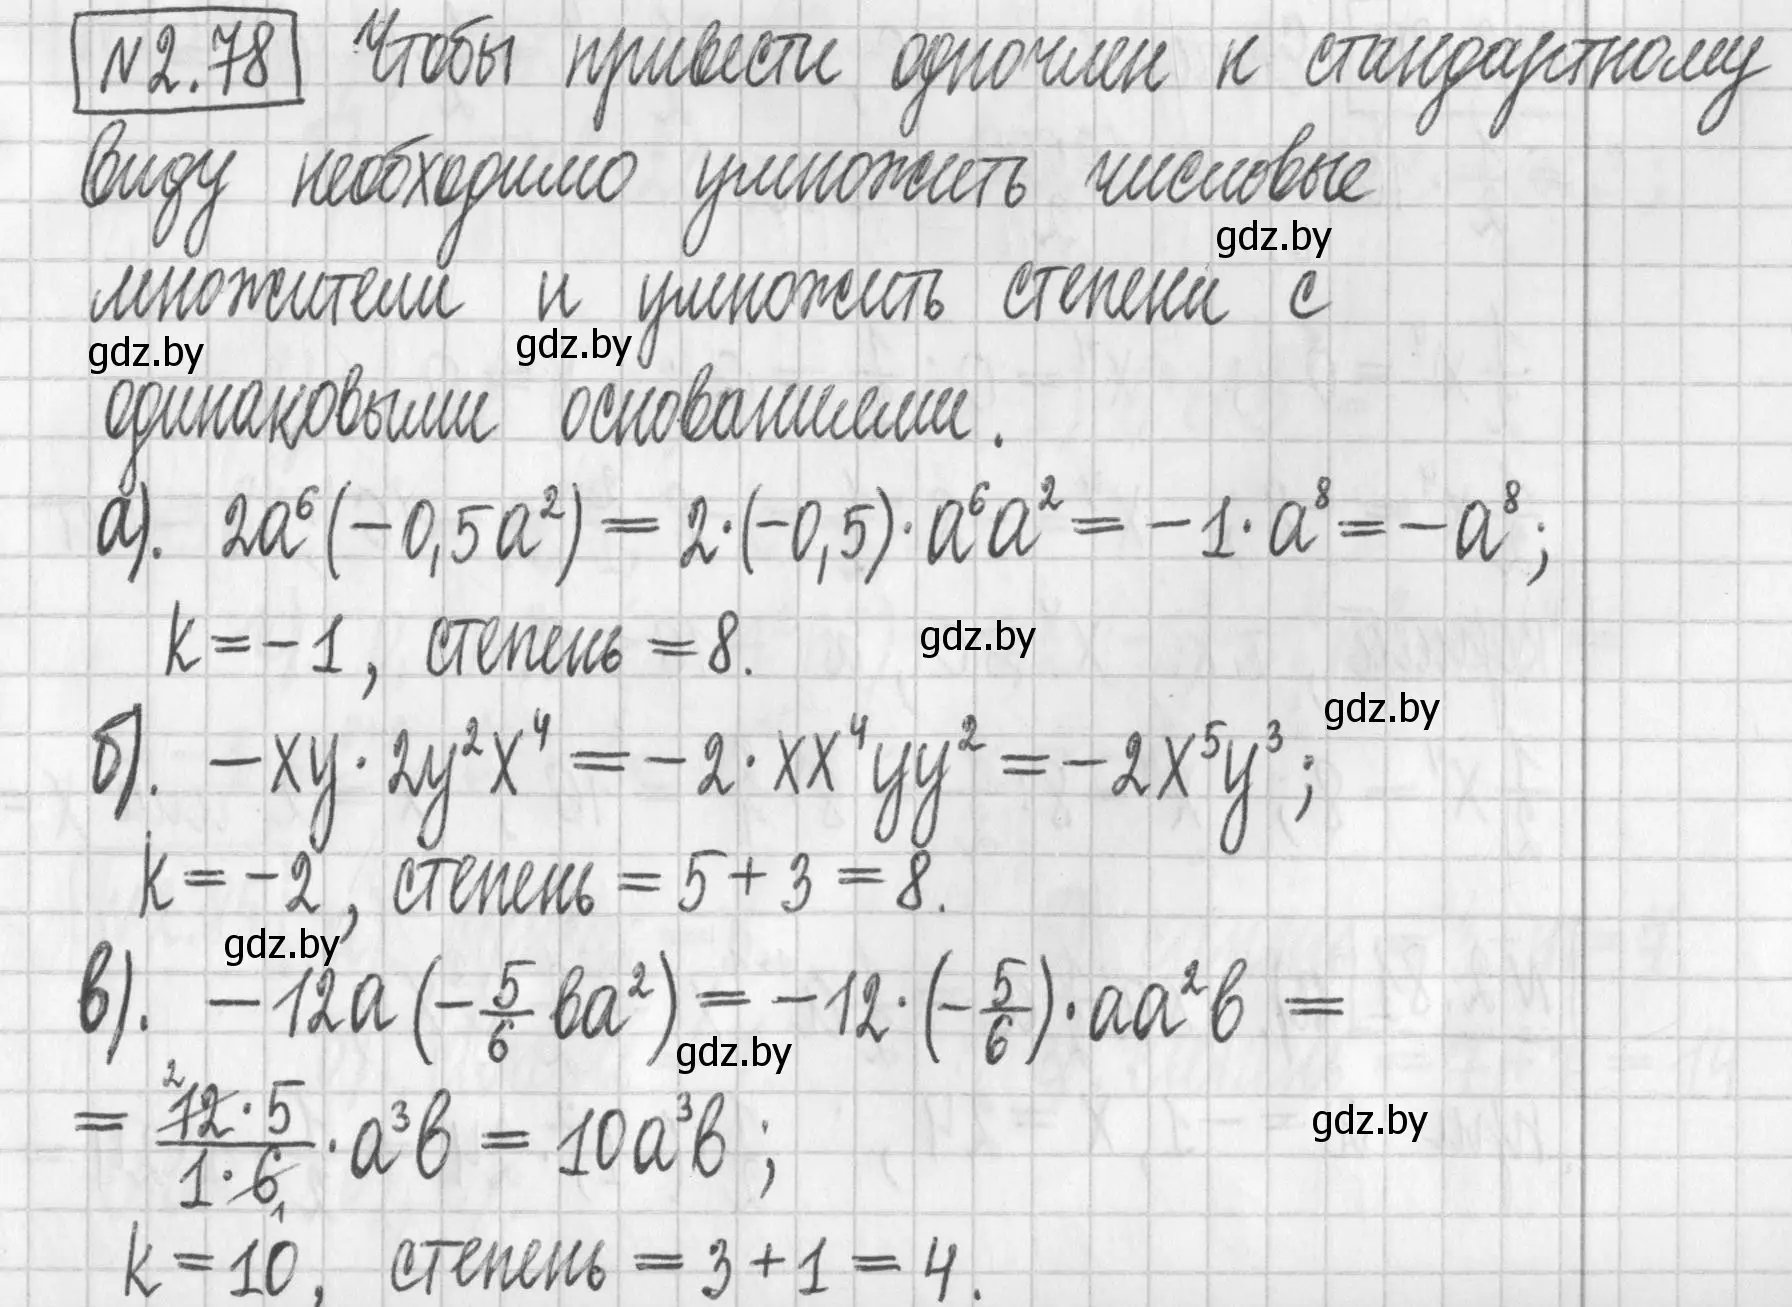 №2.78 Чтобы привести одночлен к стандартному
виду необходимо умножить числовые
gdz.by
множители и умножить степени с
gdz.by gdz.by
одинаковыми основаниями.
а). 2a⁶(−0,5a²) = 2·(−0,5)·a⁶a² = −1·a⁸ = −a⁸;
k = −1, степень = 8. gdz.by
gdz.by
б). −xy·2y²x⁴ = −2·xx⁴yy² = −2x⁵y³;
k = −2, степень = 5 + 3 = 8.
gdz.by
в). −12a(−5/6 ba²) = −12·(−5/6)·aa²b =
gdz.by
= ²12·5/1·6₁ · a³b = 10a³b; gdz.by
k = 10, степень = 3 + 1 = 4.